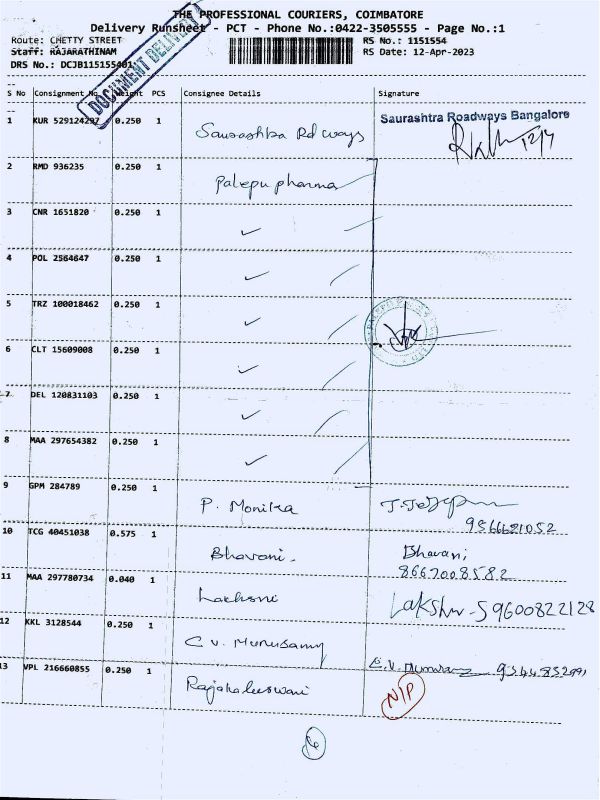 THE PROFESSIONAL COURIERS, COIMBATORE
Delivery Runsheet - PCT - Phone No.:0422-3505555 - Page No.:1
Route: CHETTY STREET RS No.: 1151554
Staff: RAJARATHINAM RS Date: 12-Apr-2023
DRS No.: DCJB115155401
DOCUMENT DELIVERY
S No Consignment No Weight PCS Consignee Details Signature
1 KUR 529124297 0.250 1 Saurashtra Rd ways Saurashtra Roadways Bangalore
12/4
2 RMD 936235 0.250 1 Palepu pharma
3 CNR 1651820 0.250 1 ✓
4 POL 2564647 0.250 1 ✓
5 TRZ 100018462 0.250 1 ✓
6 CLT 15609008 0.250 1 ✓
7 DEL 120831103 0.250 1 ✓
8 MAA 297654382 0.250 1 ✓
9 GPM 284789 0.250 1 P. Monika
9566621052
10 TCG 40451038 0.575 1 Bhavani. Bhavani
8667008582
11 MAA 297780734 0.040 1 Lakshmi 9600822128
12 KKL 3128544 0.250 1 C.V. Murusamy
13 VPL 216660855 0.250 1 Rajahaleeswari N/P